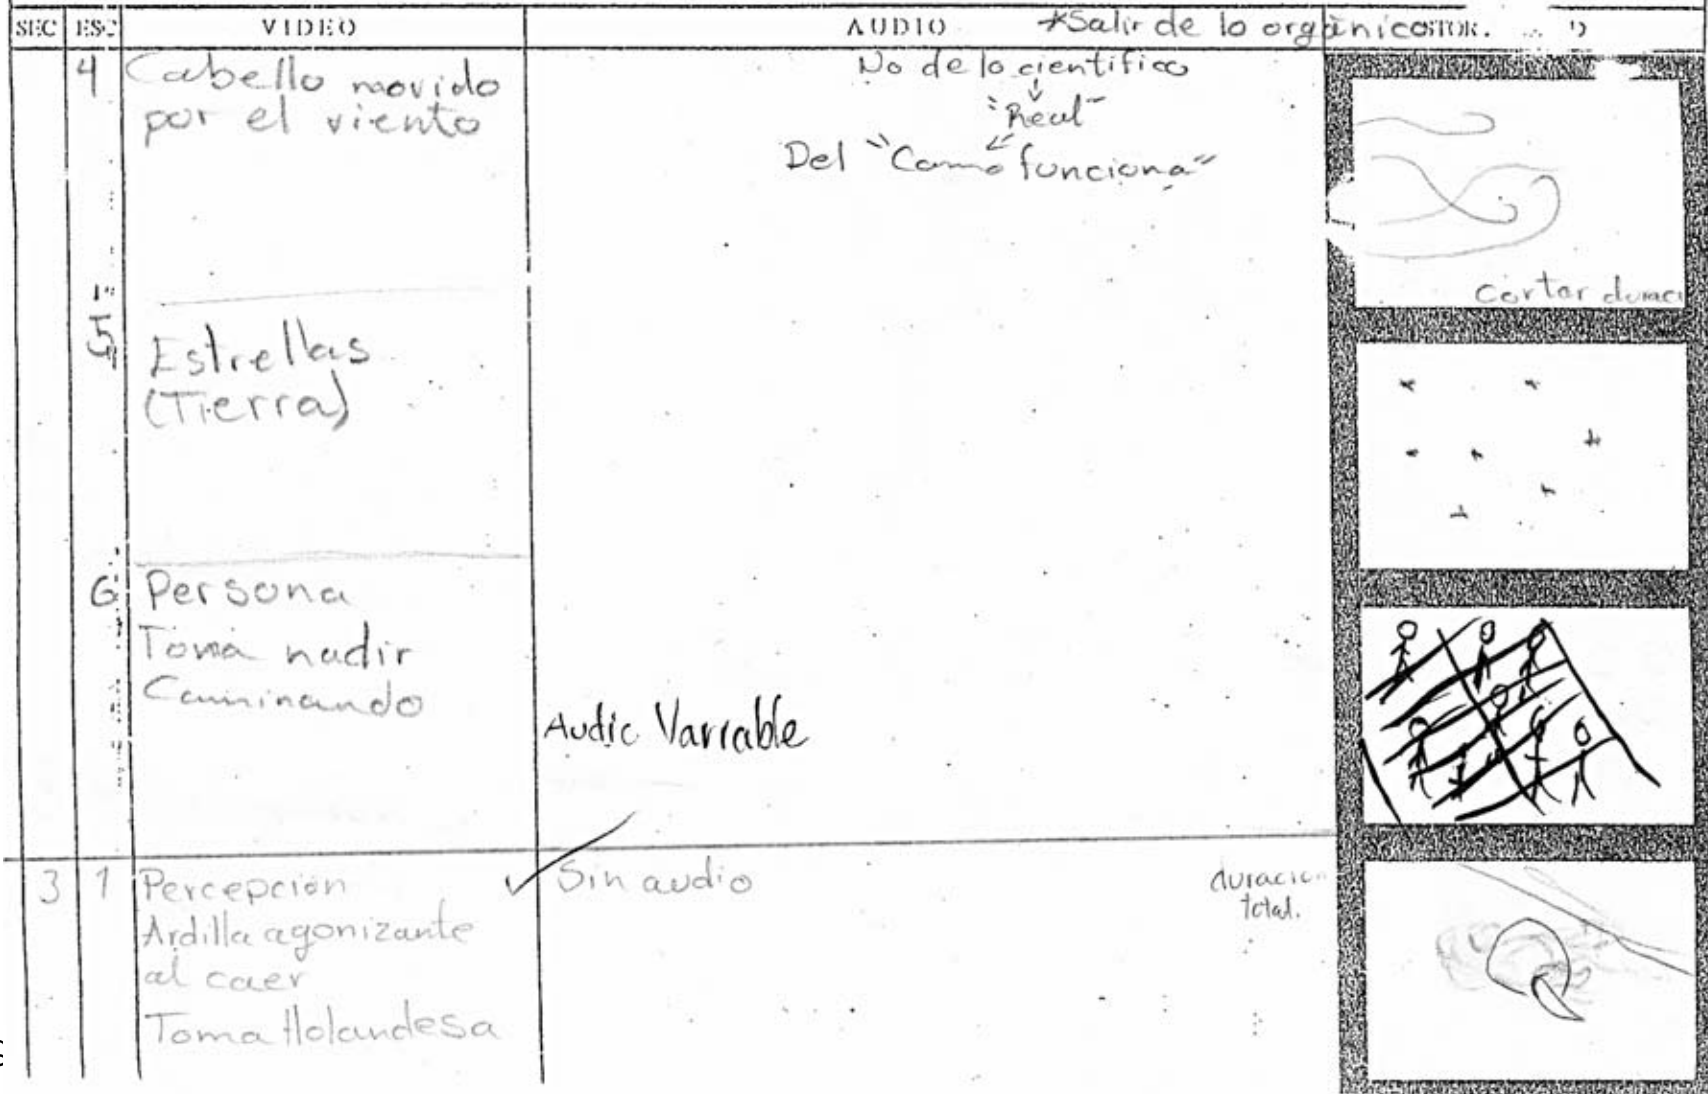 SEC ESC VIDEO AUDIO *Salir de lo orgánico STOR.
4 Cabello movido
por el viento
No de lo cientifico
"Real"
Del "Como funciona"
Cortar duraci
5 Estrellas
(Tierra)
6 Persona
Toma nadir
Caminando
Audio Variable
3 1 Percepción
Ardilla agonizante
al caer
Toma Holandesa
Sin audio
duracion
total.